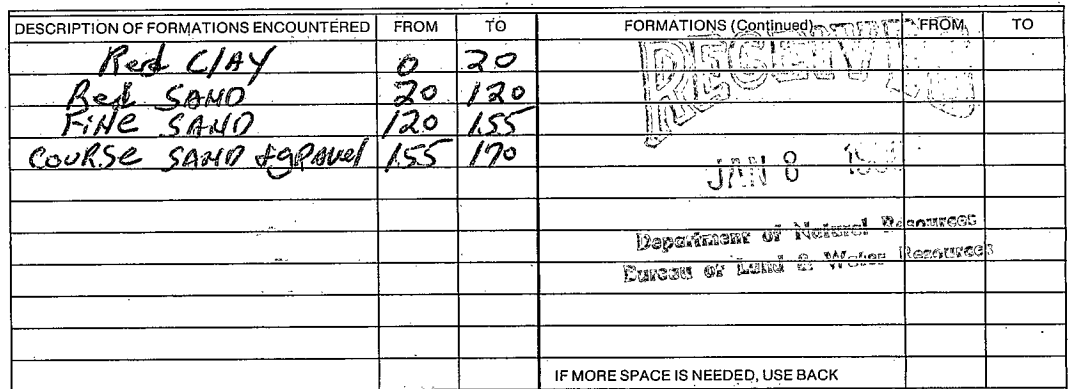 DESCRIPTION OF FORMATIONS ENCOUNTERED FROM TO FORMATIONS (Continued) FROM TO
Red ClAY 0 20
Red SAND 20 120
FiNe SAND 120 155
COURSe SAND & gRavel 155 170
RECEIVED
JAN 8
Department of Natural Resources
Bureau of Land & Water Resources
IF MORE SPACE IS NEEDED, USE BACK